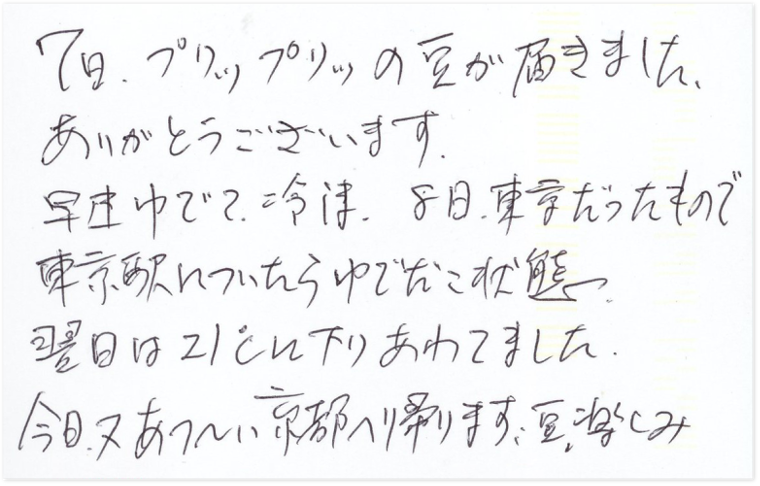 7日、プリッップリッッの豆が届きました、
ありがとうございます.
早速ゆでて、冷凍. 8日、東京だったもので
東京駅についたらゆでだこ状態〜.
翌日は21℃に下りあわてました.
今日、又あつ〜い京都へり帰ります、豆、楽しみ